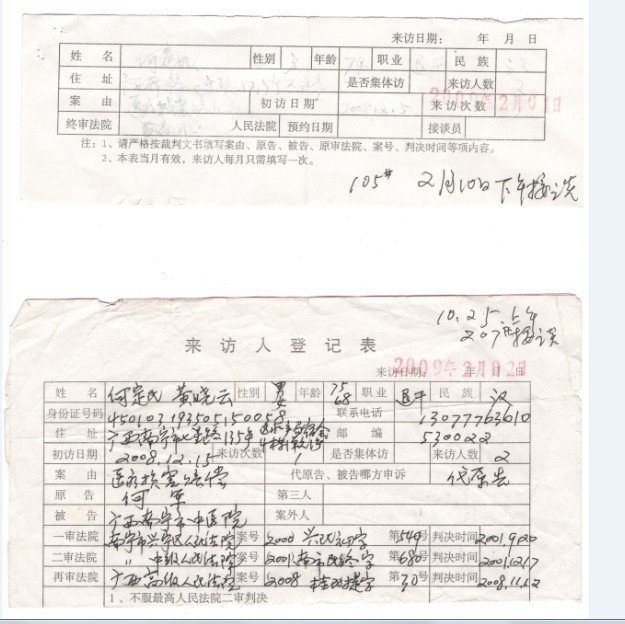 来访日期： 年 月 日
姓 名 何宗民 性别 男 年龄 职业 退干 民 族 汉
住 址 是否集体访 来访人数 2
案 由 初访日期 2008.12.5 来访次数
2009年2月01日
终审法院 人民法院 预约日期 接谈员
注：1、请严格按裁判文书填写案由、原告、被告、原审法院、案号、判决时间等项内容。
2、本表当月有效，来访人每月只需填写一次。
105# 2月10日下午接谈
10.25.上午
207 接谈
来 访 人 登 记 表
2009年2月02日
来访日期： 年 月 日
姓 名 何宗民 黄晓云 性别 男 女 年龄 75 68 职业 退干 民 族 汉
身份证号码 450103193505150058 联系电话 13077763610
住 址 广西南宁市 135号 邮 编 530022
初访日期 2008.12.15 来访次数 1 是否集体访 来访人数 2
案 由 医疗损害赔偿 代原告、被告哪方申诉 代原告
原 告 何军 第三人
被 告 广西南宁市中医院 案外人
一审法院 南宁市兴宁区人民法院 案号 2000 兴民初字 第549号 判决时间 2001.9.20
二审法院 〃 中级人民法院 案号 2001 南市民终字 第680号 判决时间 2001.12.17
再审法院 广西高级人民法院 案号 2008 桂民提字 第30号 判决时间 2008.11.12
1、不服最高人民法院二审判决